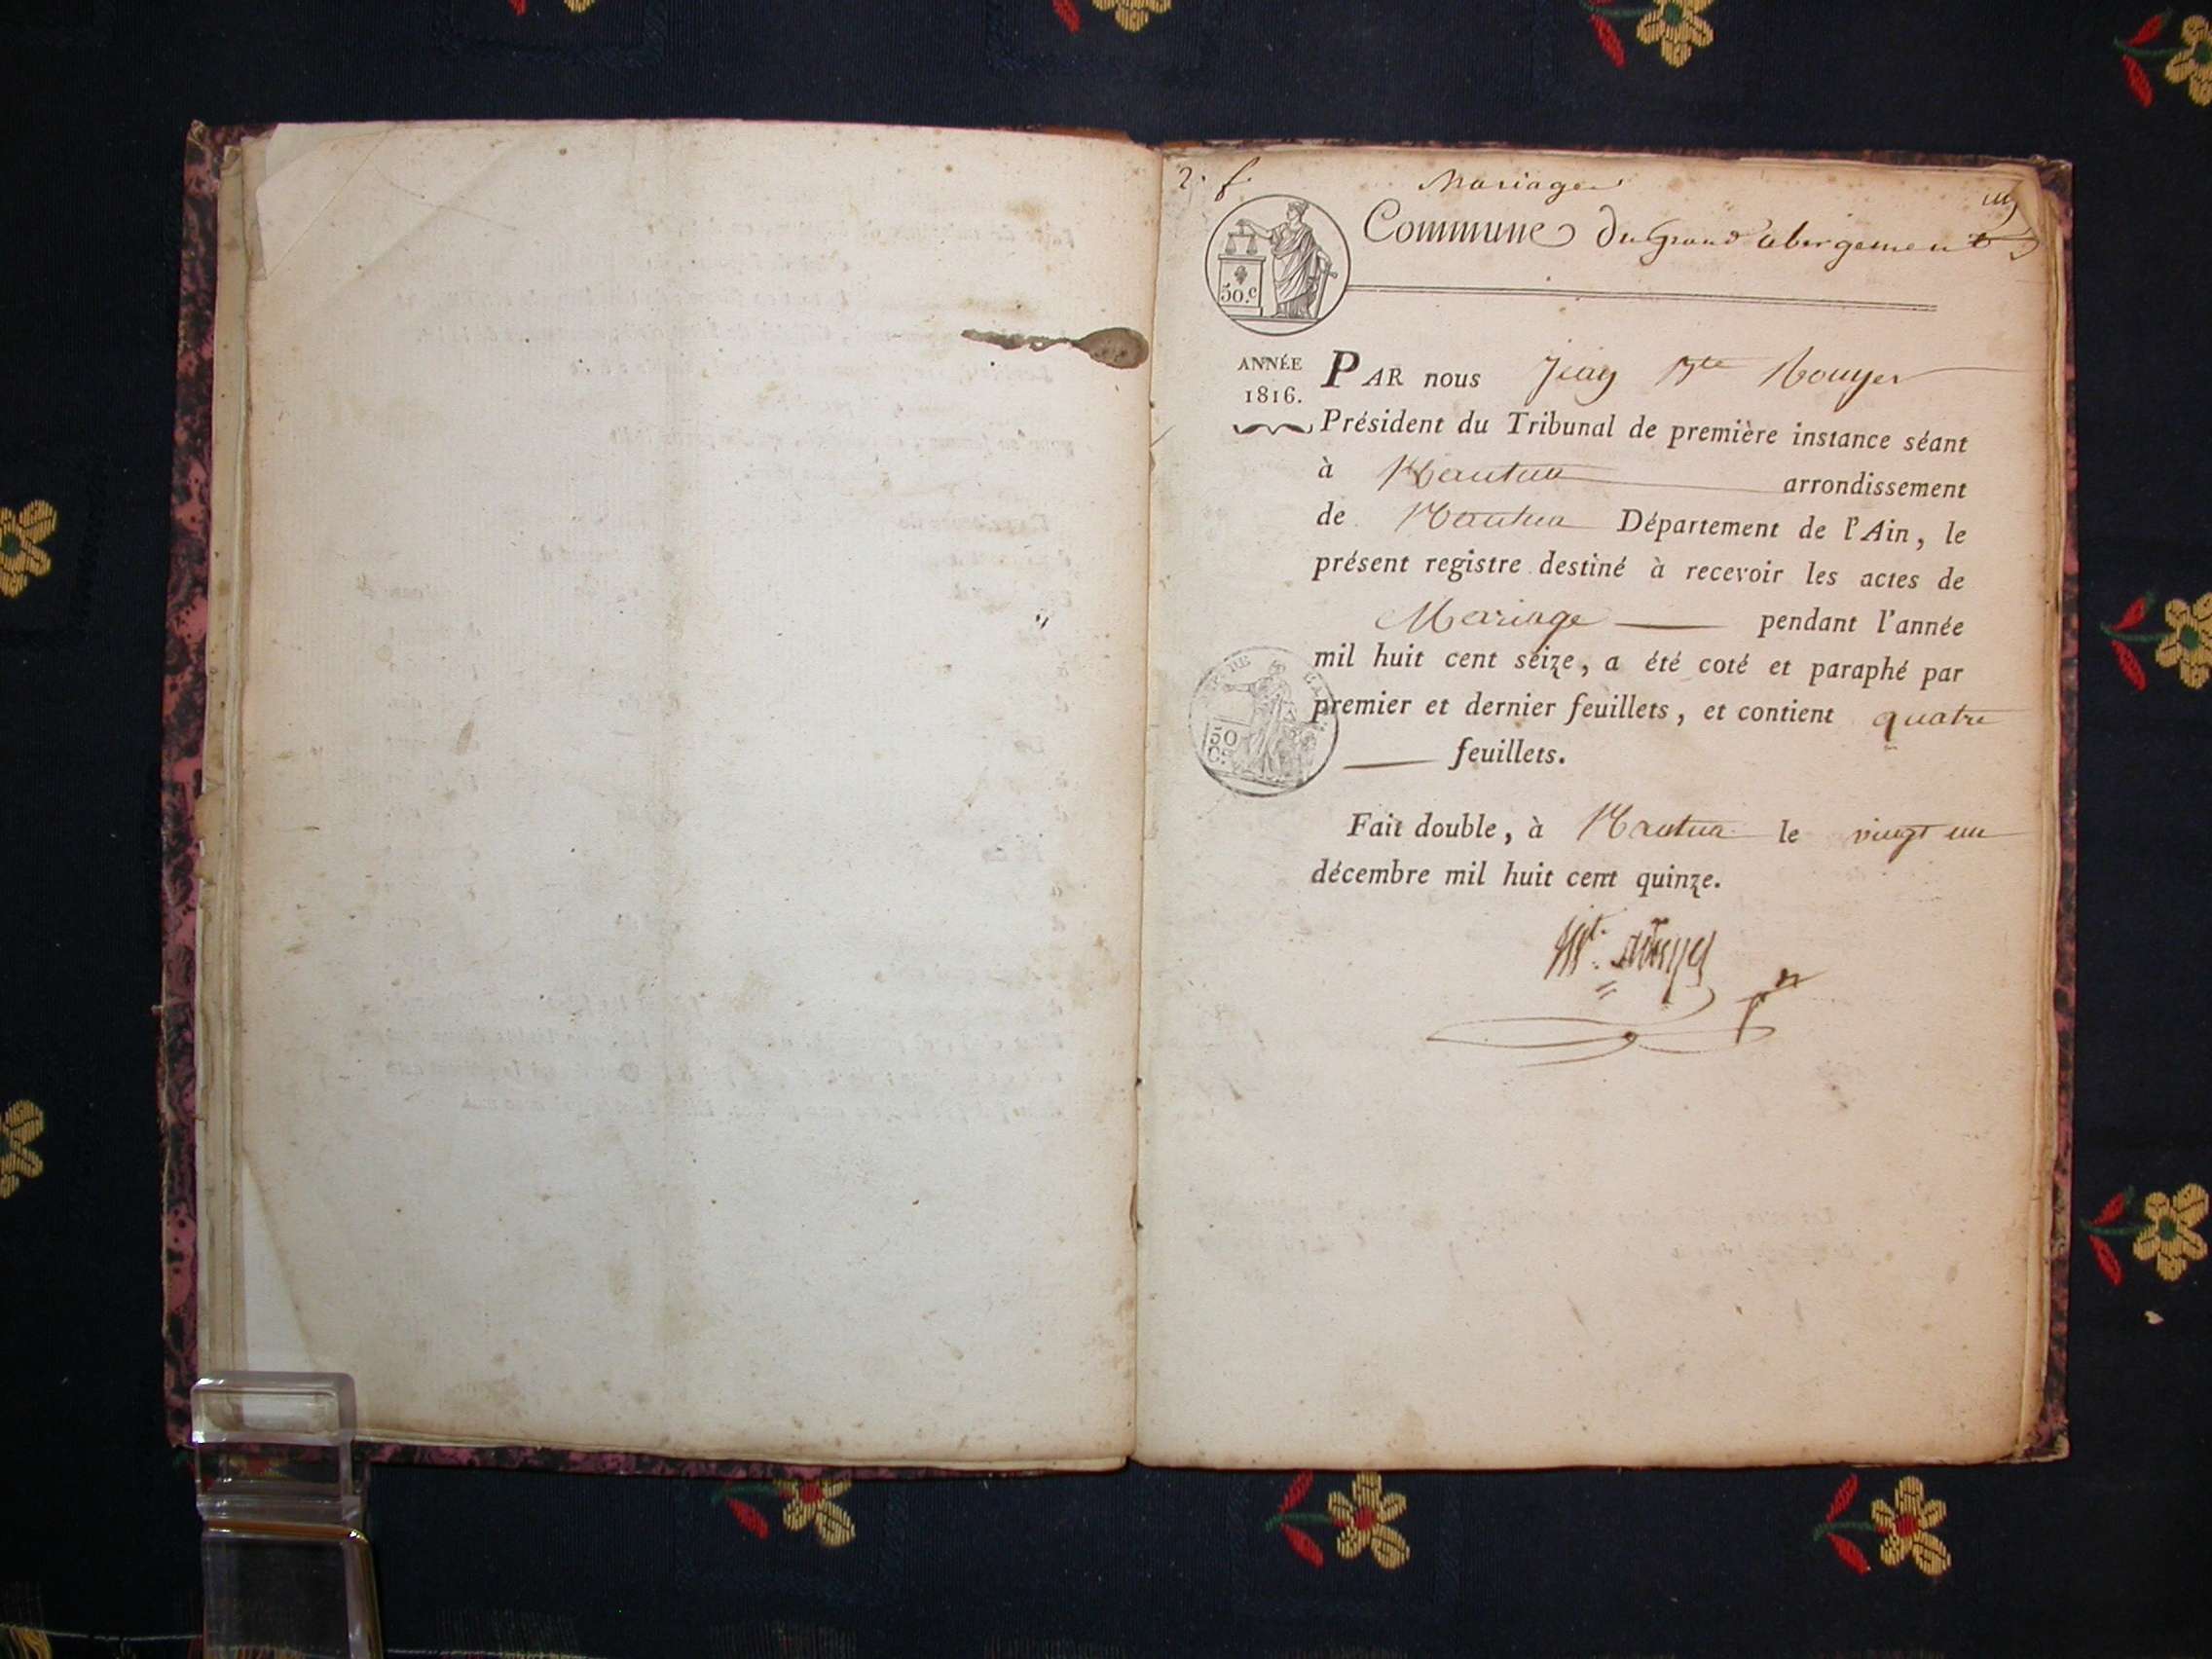 2. f.
Mariage
Commune du grand abergement
50.c
ANNÉE
1816.
PAR nous Jean Bte Rouyer
Président du Tribunal de première instance séant
à Nantua arrondissement
de Nantua Département de l'Ain, le
présent registre destiné à recevoir les actes de
Mariage pendant l'année
mil huit cent seize, a été coté et paraphé par
premier et dernier feuillets, et contient quatre
feuillets.
50
C.
Fait double, à Nantua le vingt un
décembre mil huit cent quinze.